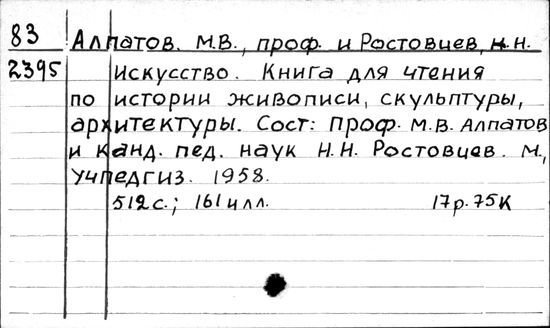 83 Алпатов. М.В., проф. и Ростовцев, Н.Н.
2395 Искусство. Книга для чтения
по истории живописи, скульптуры,
архитектуры. Сост: Проф. М.В. Алпатов
и канд. пед. наук Н.Н. Ростовцев. М.,
Учпедгиз. 1958.
512 с.; 161 илл. 17р.75к